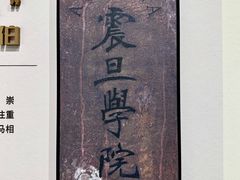 震旦學院
伯
崇
注重
马相